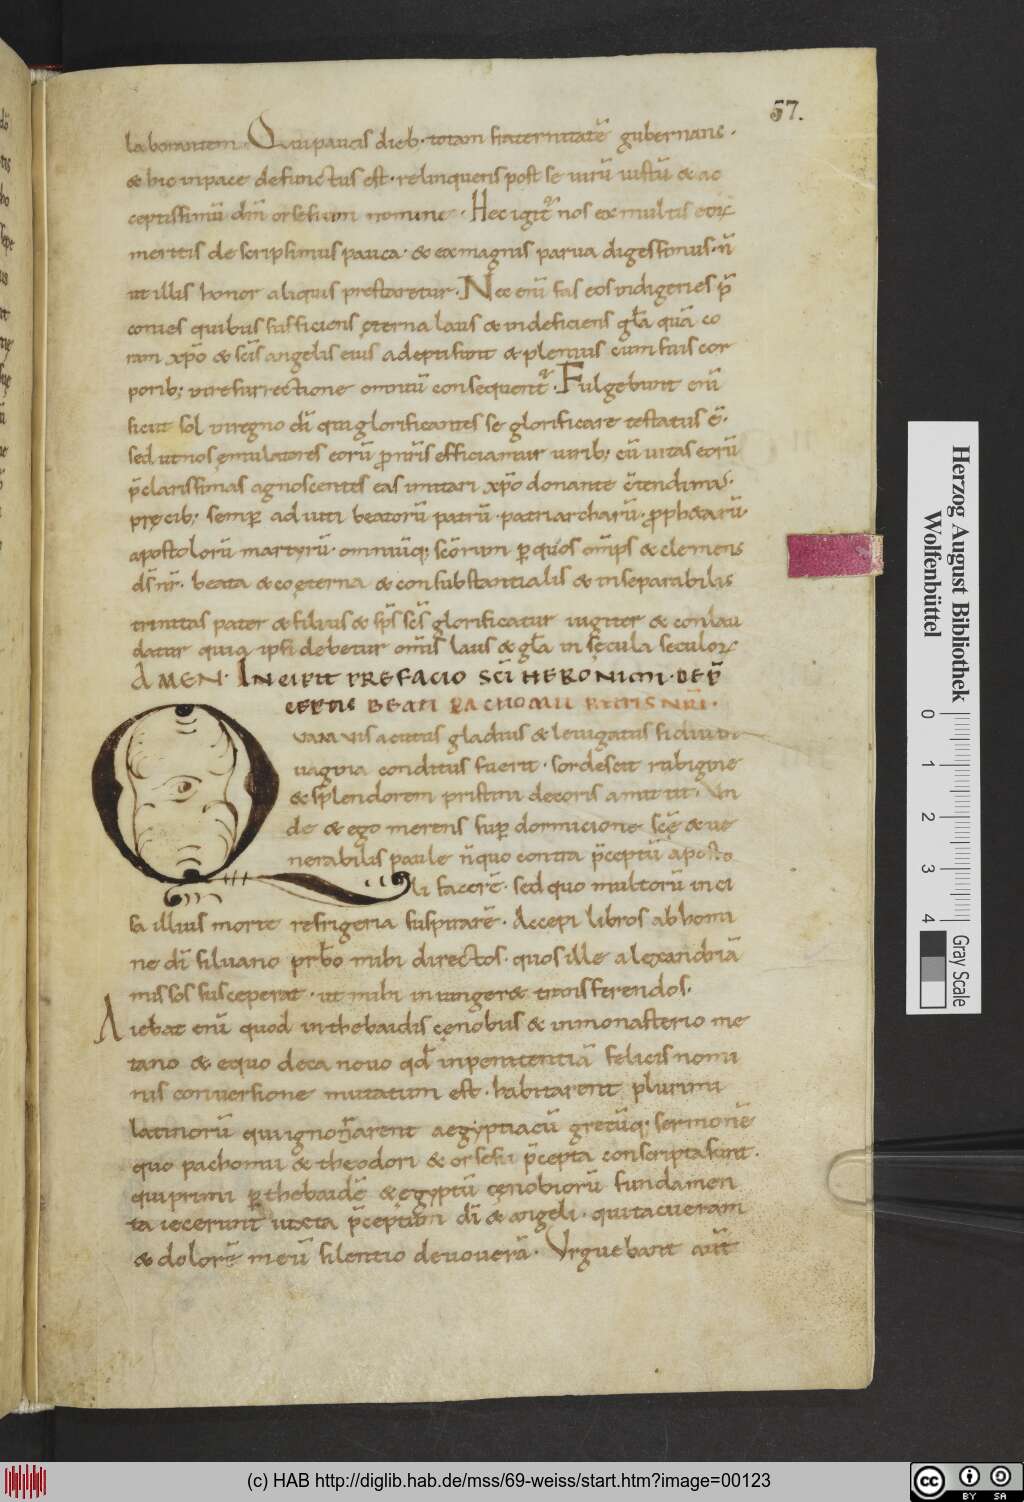 57.
laborantem. Qui inpaucis dieb· totam fraternitatē gubernans·
& hic inpace defunctus est· relinquens post se uirū iustū & ac
ceptissimū dm̄ orsesium nomine· Hec igit̄ nos ex multis eoꝝ
meritis descripsimus pauca· & ex magnis parua digessimus· n̄
ut illis honor aliquis prestaretur· Nec enī fas eos indigeries p̄
conies quibus sufficiens ęterna laus & indeficiens gl̄a quā co
ram xp̄o & sc̄is angelis eius adepti sunt & plenius cum suis cor
porib; in resurrectione omniū consequent̄· Fulgebunt enī
sicut sol in regno dī qui glorificantes se glorificare testatus ē·
sed ut nos ęmulatores eorū pro nr̄is efficiamur uirib; cū uitas eorū
p̄clarissimas agnoscentes eas imitari xp̄o donante c̄tendimus·
pręcib; semꝑ adiuti beatorū patrū· patriarcharū· ꝓph&arū·
apostolorū martyrū· omniūq; sc̄orum ꝑ quos om̄ps & clemens
ds̄ nr̄· beata & coęterna & consubstantialis & inseparabilis
trinitas pater & filius & sp̄s sc̄s glorificatur iugiter & conlau
datur quia ipsi debetur om̄is laus & gl̄a in sęcula seculoꝝ
AMEN· INCIPIT PREFACIO SC̄I HERONIMI· DE P̄
CEPTIS BEATI PACHOMII PATRIS NR̄I·
QUAMVIS acutus gladius & leuigatus si diu in
uagina conditus fuerit· sordescit rubigine
& splendorem pristini decoris amittit· Un
de & ego merens suꝑ dormicione sc̄ę & ue
nerabilis paule n̄ quo contra p̄ceptū aposto
li facerē· sed quo multorū in ei
sa illius morte refrigeria suspirarē· Accepi libros ab homi
ne dī siluano prb̄o mihi directos· quos ille alexandriā
missos susceperat· ut mihi iniunger& transferendos·
Aiebat enī quod in thebaidis cęnobiis & in monasterio me
tano & equo deca nouo qd̄ in penitentiā felicis nomi
nis conuersione mutatum est· habitarent plurimi
latinorū qui ignorarent aegyptiacū grecūq; sermonē
quo pachomii & theodori & orsesii p̄cepta conscripta sunt·
qui primi ꝑ thebaidē & ęgyptū cęnobiorū fundamen
ta iecerunt iuxta p̄ceptum dī & angeli· qui tacueram
& dolorē meū silentio deuouerā· Urguebant aut̄
Herzog August Bibliothek
Wolfenbüttel
0 1 2 3 4
Gray Scale
(c) HAB http://diglib.hab.de/mss/69-weiss/start.htm?image=00123
cc BY SA